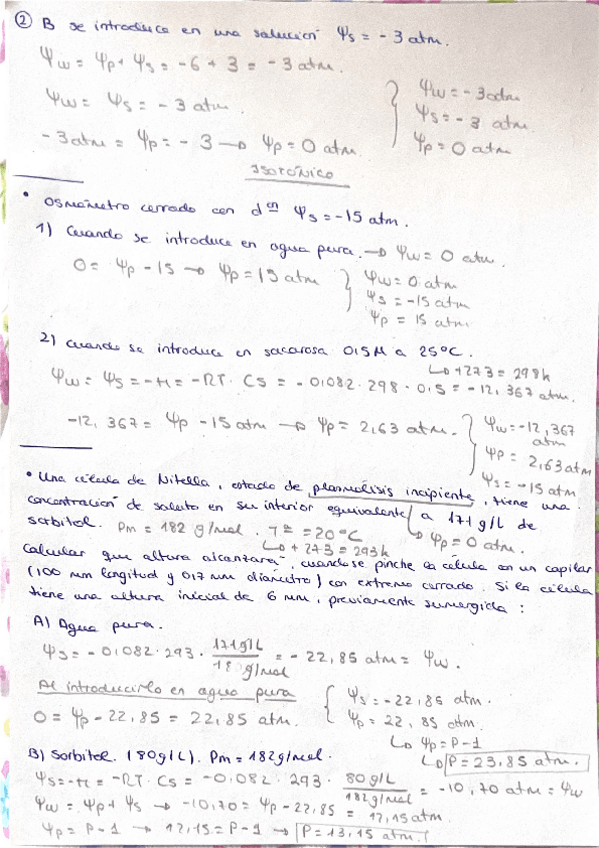 ② B se introduce en una solución Ψs = -3 atm.
Ψw = Ψp + Ψs = -6 + 3 = -3 atm.
Ψw = Ψs = -3 atm.
-3 atm = Ψp = -3 → Ψp = 0 atm
Ψw = -3 atm
Ψs = -3 atm.
Ψp = 0 atm
ISOTÓNICO
• Osmómetro cerrado con dᶜⁿ Ψs = -15 atm.
1) Cuando se introduce en agua pura. → Ψw = 0 atm.
0 = Ψp - 15 → Ψp = 15 atm
Ψw = 0 atm
Ψs = -15 atm
Ψp = 15 atm.
2) Cuando se introduce en sacarosa 0'5M a 25ºC.
↳ +273 = 298k
Ψw = Ψs = -π = -RT · Cs = -0'082 · 298 · 0'5 = -12,367 atm.
-12,367 = Ψp - 15 atm → Ψp = 2,63 atm.
Ψw = -12,367 atm
Ψp = 2,63 atm
Ψs = -15 atm
• Una célula de Nitella, estado de plasmólisis incipiente, tiene una
concentración de soluto en su interior equivalente a 171 g/L de
↳ Ψp = 0 atm.
sorbitol. Pm = 182 g/mol. Tª = 20ºC
↳ +273 = 293k
Calcular que altura alcanzará, cuando se pinche la célula con un capilar
(100 mm longitud y 0'7 mm diámetro) con extremo cerrado. Si la célula
tiene una altura inicial de 6 mm, previamente sumergida:
A) Agua pura.
Ψs = -0'082 · 293 · 171g/L / 18 g/mol = -22,85 atm = Ψw.
Al introducirlo en agua pura
0 = Ψp - 22,85 = 22,85 atm.
Ψs = -22,85 atm.
Ψp = 22,85 atm.
↳ Ψp = P-1
↳ P = 23,85 atm.
B) Sorbitol. (80g/L). Pm = 182g/mol.
Ψs = -π = -RT · Cs = -0'082 · 293 · 80g/L / 182g/mol = -10,70 atm = Ψw
Ψw = Ψp + Ψs → -10,70 = Ψp - 22,85 = 12,15 atm.
Ψp = P-1 → 12,15 = P-1 → P = 13,15 atm.